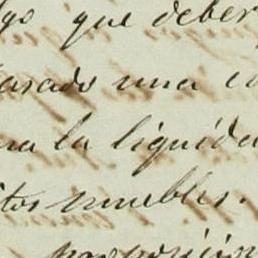 go que deber
asado una c
ra la liquida
itos muebles.
proporcion